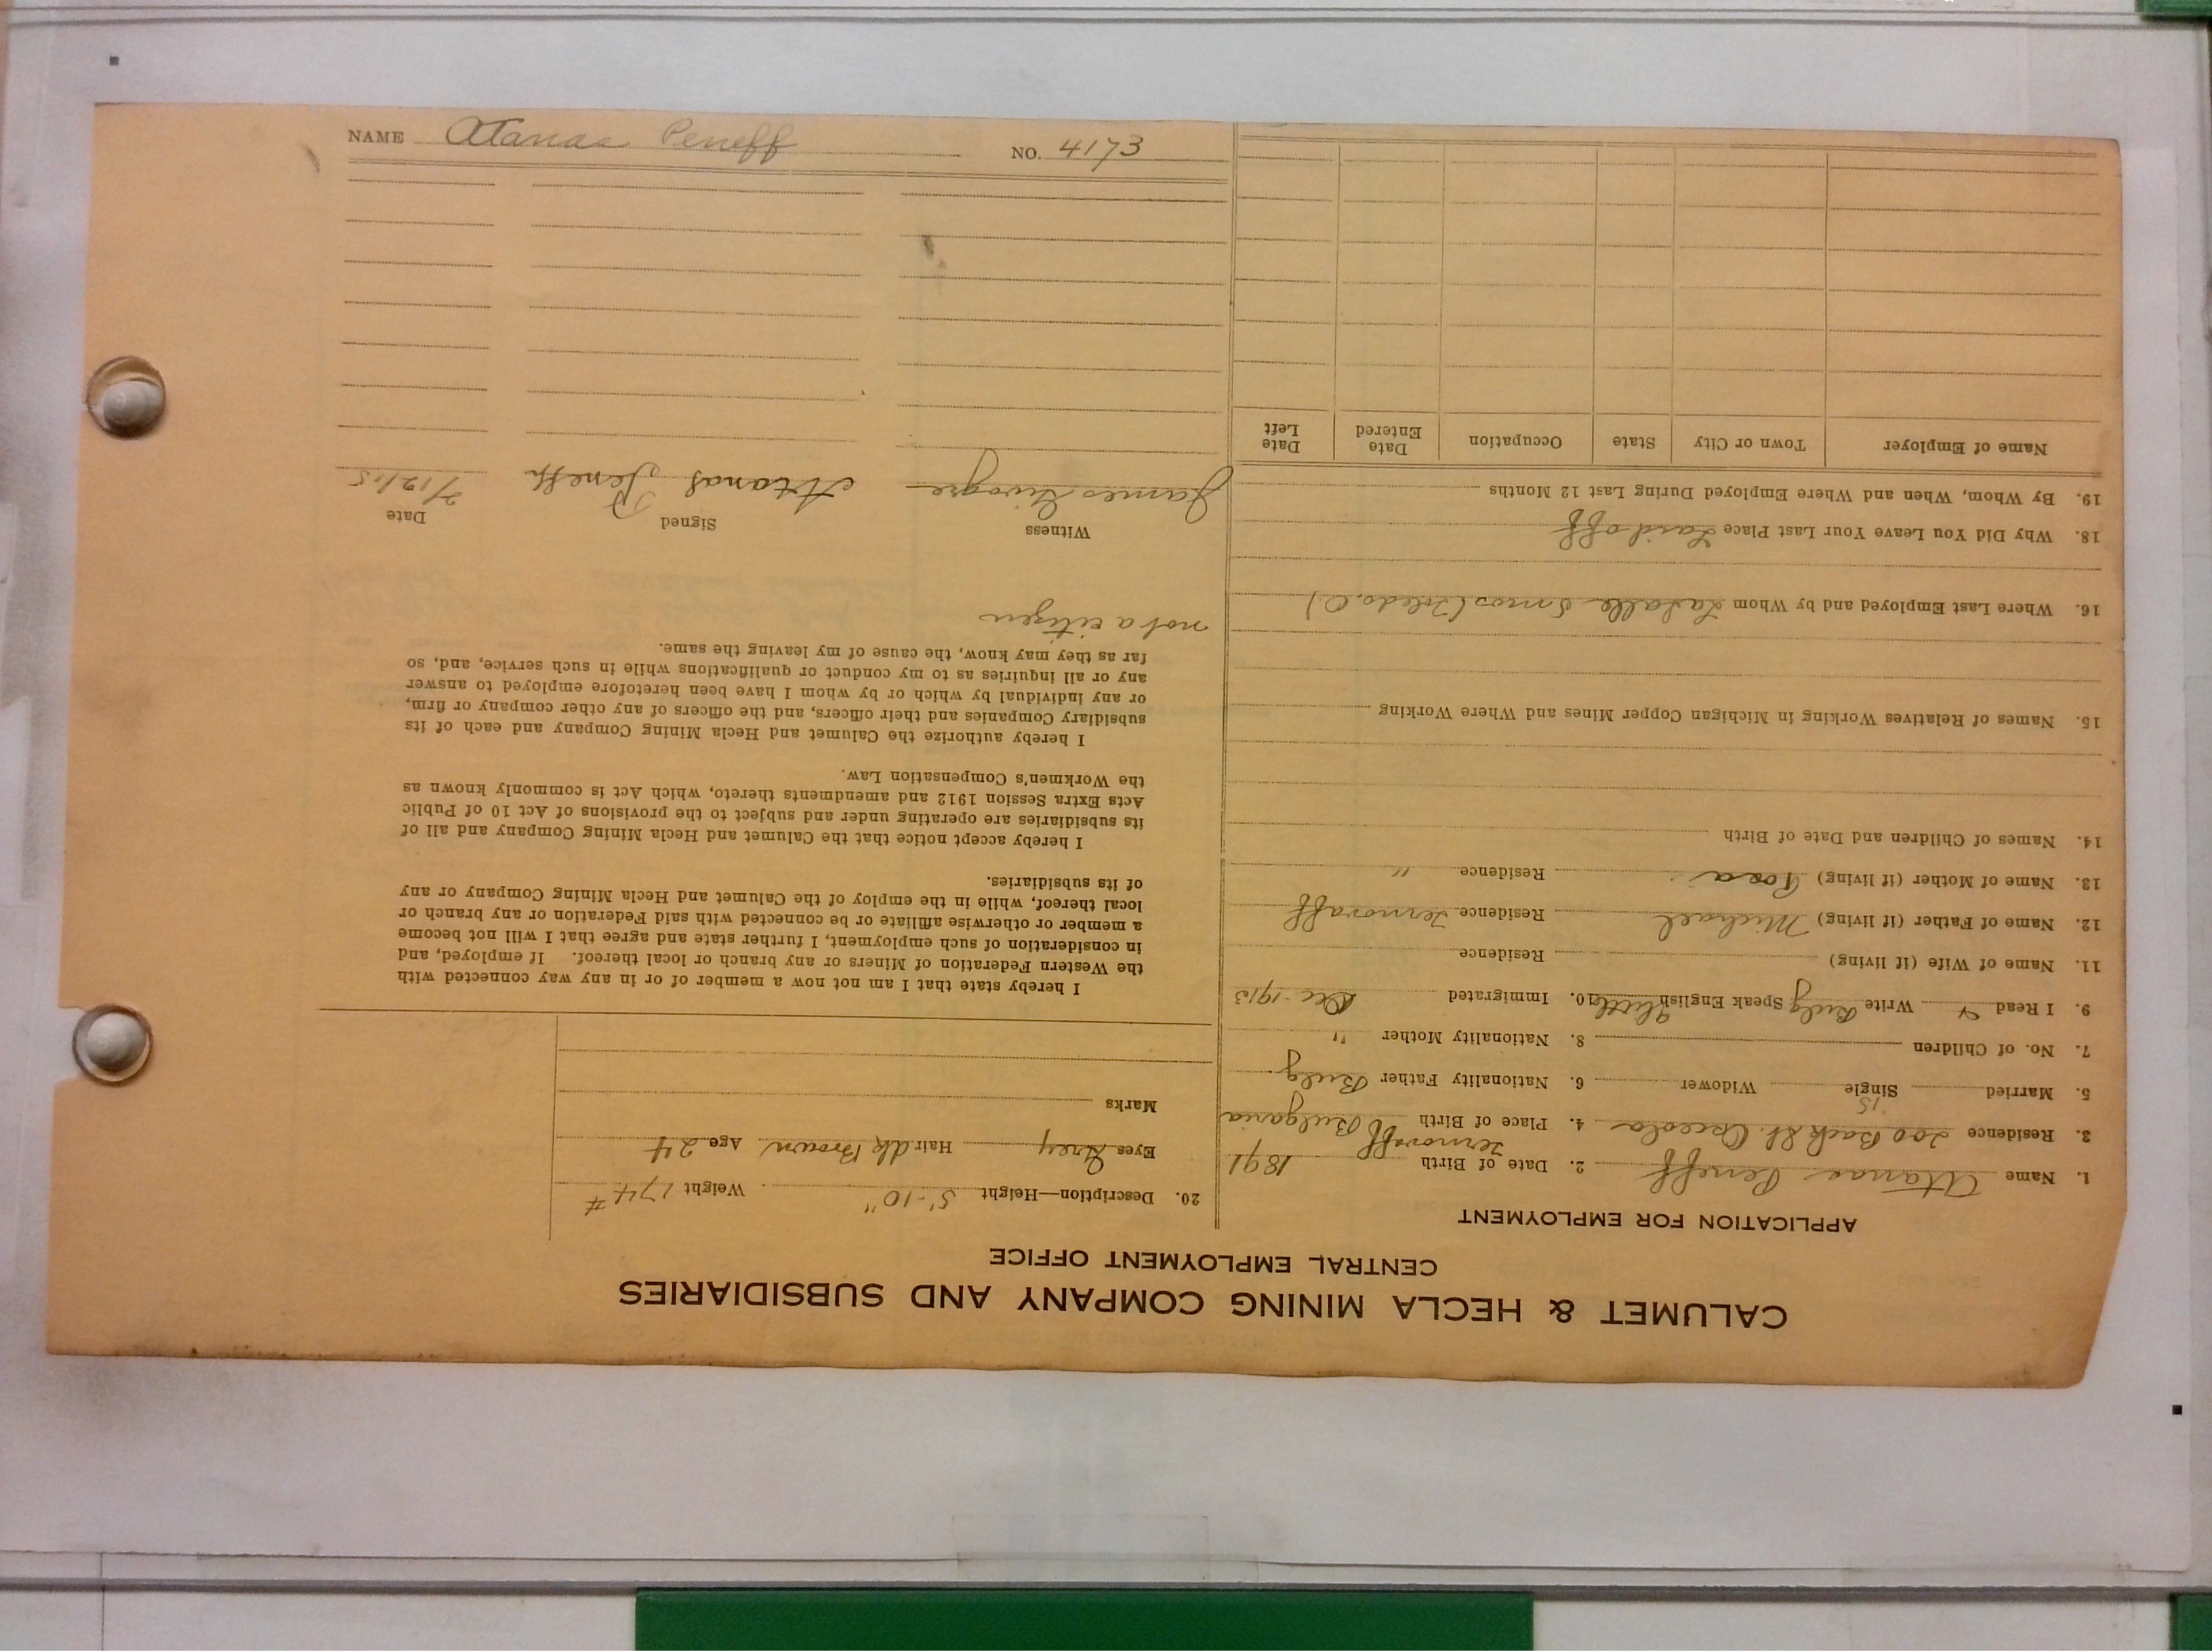 CALUMET & HECLA MINING COMPANY AND SUBSIDIARIES
CENTRAL EMPLOYMENT OFFICE
APPLICATION FOR EMPLOYMENT
1. Name Atanas Peneff 2. Date of Birth 1891
3. Residence 200 Back St. Osceola 4. Place of Birth Bulgaria
5. Married Single Widower 6. Nationality Father Bulg
7. No. of Children 8. Nationality Mother "
9. I Read & Write Bulg Speak English little 10. Immigrated Dec - 1913
11. Name of Wife (if living) Residence
12. Name of Father (if living) Michael Residence
13. Name of Mother (if living) Residence "
14. Names of Children and Date of Birth
15. Names of Relatives Working in Michigan Copper Mines and Where Working
16. Where Last Employed and by Whom (Toledo, O.)
18. Why Did You Leave Your Last Place Laid off
19. By Whom, When and Where Employed During Last 12 Months
Name of Employer Town or City State Occupation Date Entered Date Left
20. Description—Height 5'-10" Weight 174 #
Eyes Grey Hair dk Brown Age 24
Marks
I hereby state that I am not now a member of or in any way connected with
the Western Federation of Miners or any branch or local thereof. If employed, and
in consideration of such employment, I further state and agree that I will not become
a member or otherwise affiliate or be connected with said Federation or any branch or
local thereof, while in the employ of the Calumet and Hecla Mining Company or any
of its subsidiaries.
I hereby accept notice that the Calumet and Hecla Mining Company and all of
its subsidiaries are operating under and subject to the provisions of Act 10 of Public
Acts Extra Session 1912 and amendments thereto, which Act is commonly known as
the Workmen's Compensation Law.
I hereby authorize the Calumet and Hecla Mining Company and each of its
subsidiary Companies and their officers, and the officers of any other company or firm,
or any individual by which or by whom I have been heretofore employed to answer
any or all inquiries as to my conduct or qualifications while in such service, and, so
far as they may know, the cause of my leaving the same.
not a citizen
Witness Signed Date
James Atanas Peneff /12/15
NAME Atanas Peneff NO. 4173